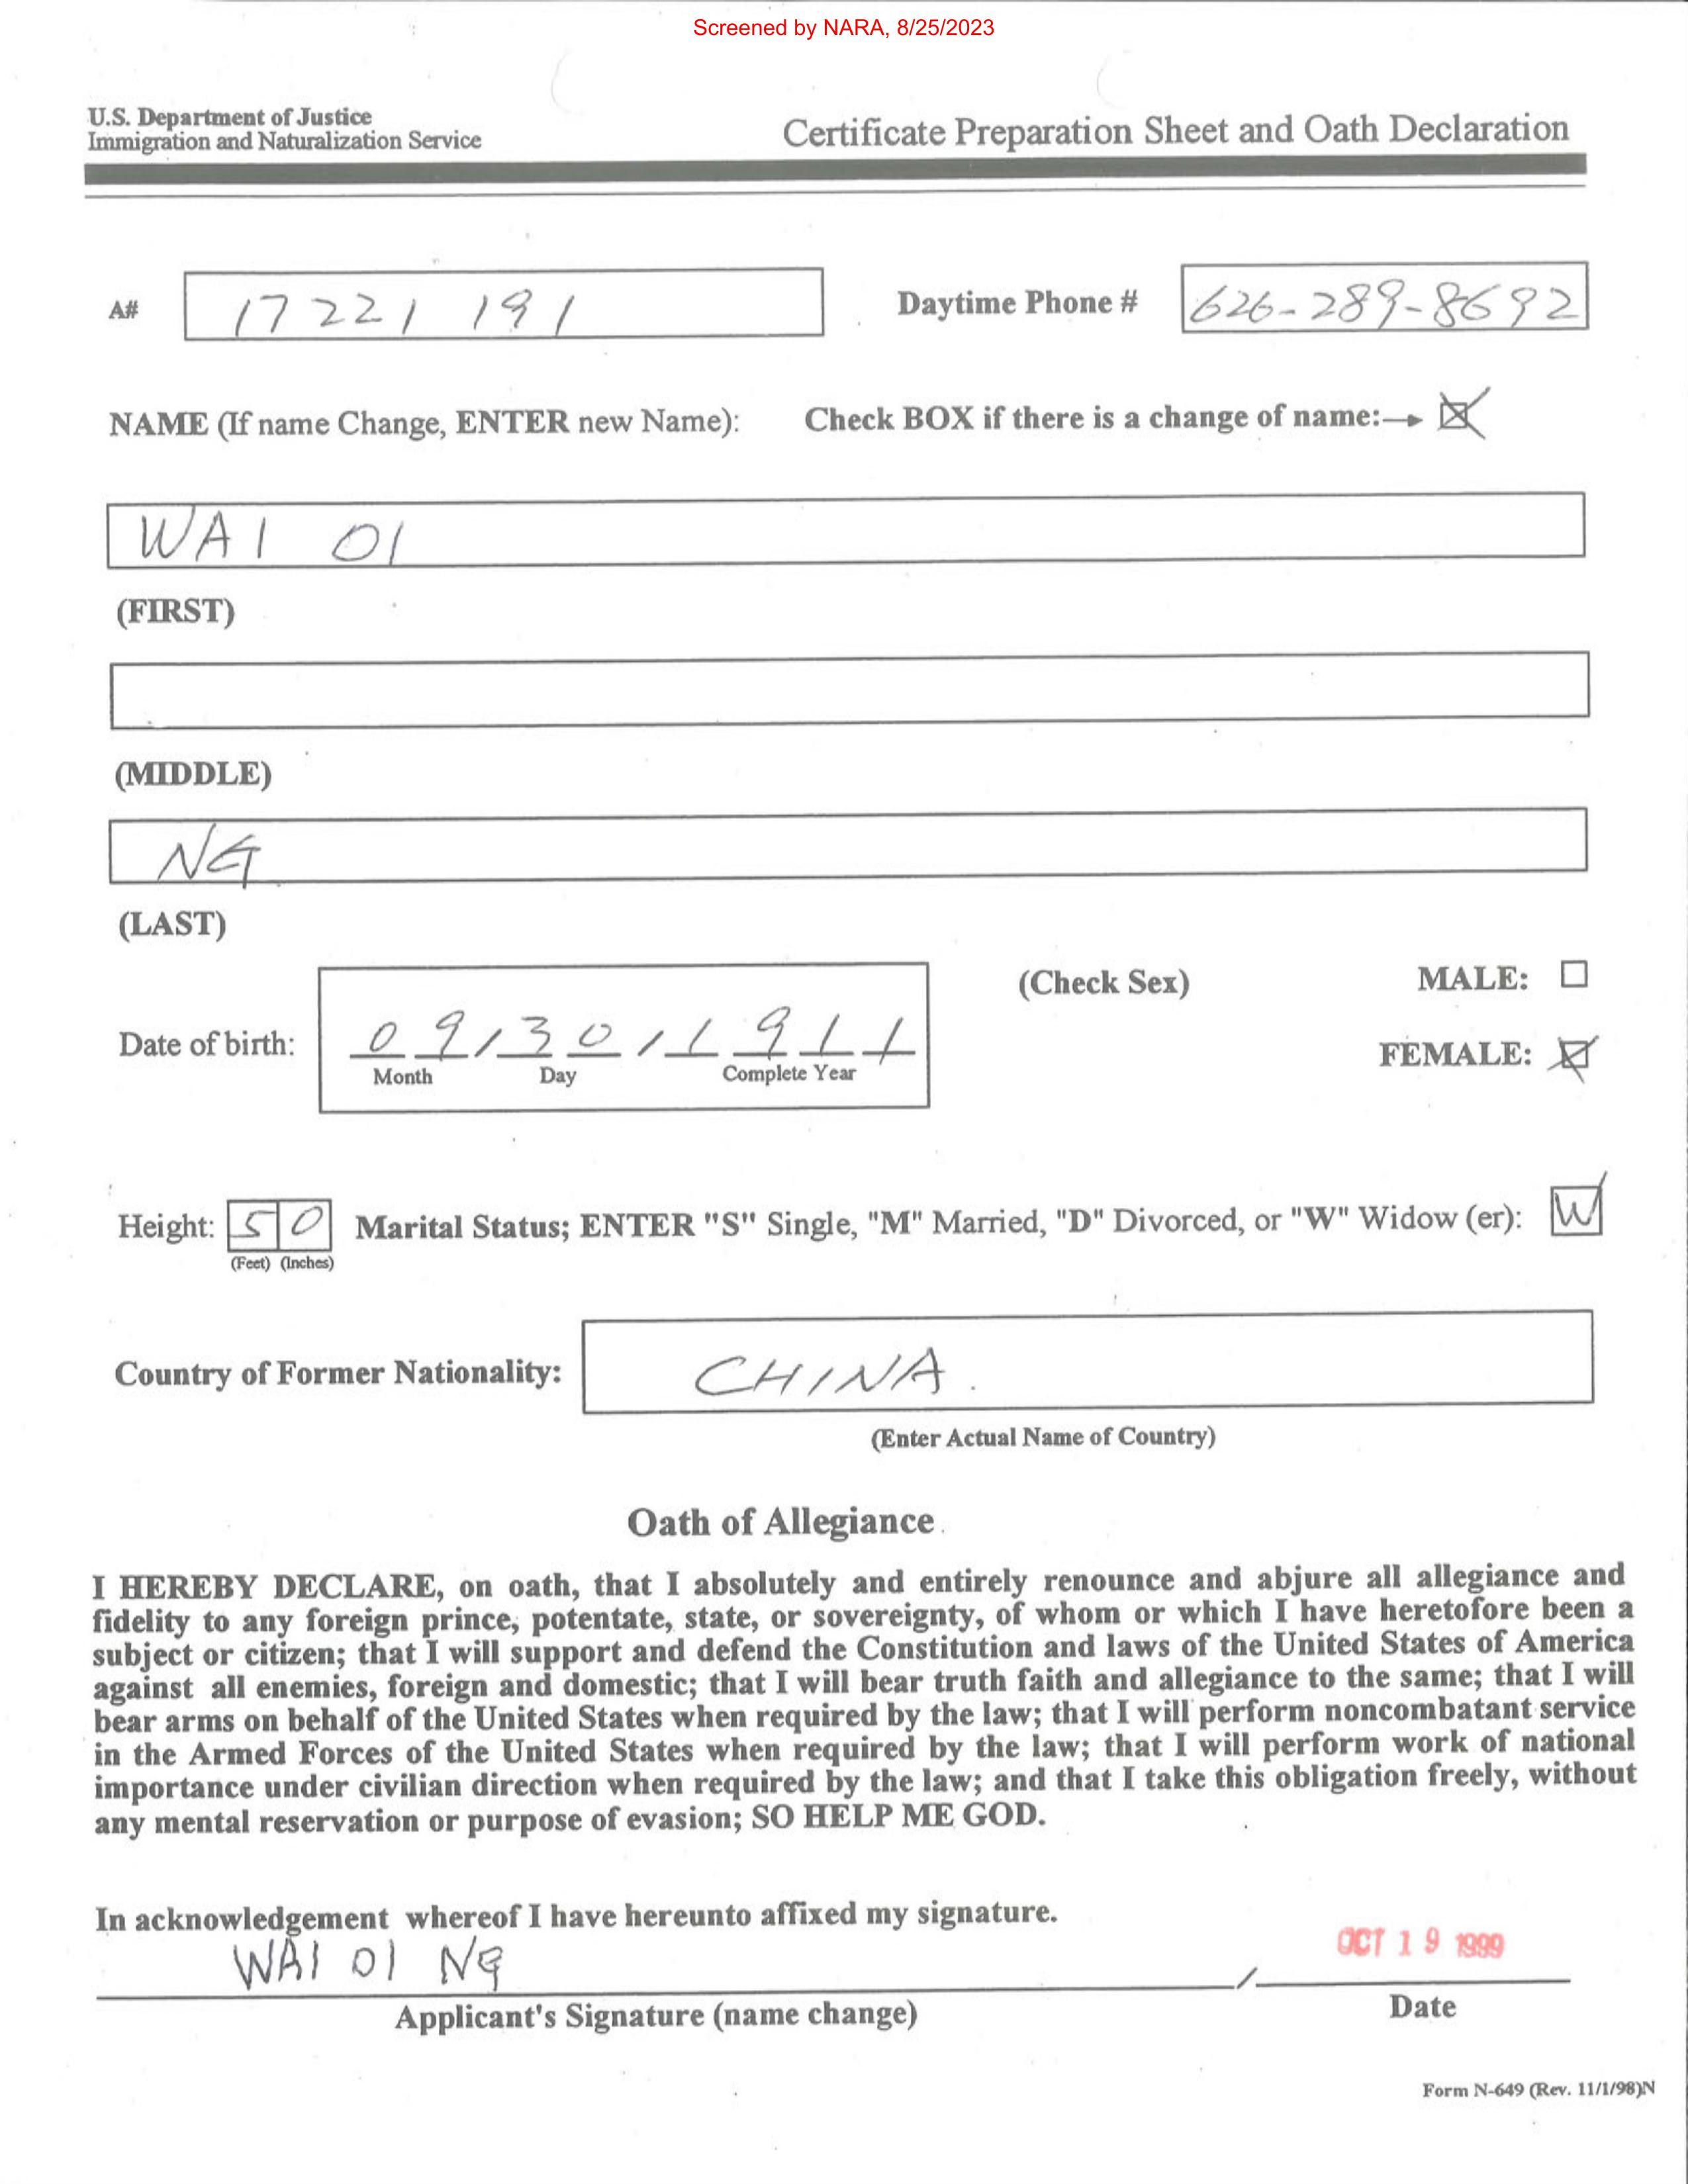 Screened by NARA, 8/25/2023
U.S. Department of Justice
Immigration and Naturalization Service
Certificate Preparation Sheet and Oath Declaration
A# 17 221 191
Daytime Phone # 626-289-8692
NAME (If name Change, ENTER new Name): Check BOX if there is a change of name:
WAI OI
(FIRST)
(MIDDLE)
NG
(LAST)
(Check Sex) MALE:
Date of birth: 09/30/1911
FEMALE:
Month Day Complete Year
Height: 5 0 Marital Status; ENTER "S" Single, "M" Married, "D" Divorced, or "W" Widow (er): W
(Feet) (Inches)
Country of Former Nationality: CHINA.
(Enter Actual Name of Country)
Oath of Allegiance
I HEREBY DECLARE, on oath, that I absolutely and entirely renounce and abjure all allegiance and
fidelity to any foreign prince, potentate, state, or sovereignty, of whom or which I have heretofore been a
subject or citizen; that I will support and defend the Constitution and laws of the United States of America
against all enemies, foreign and domestic; that I will bear truth faith and allegiance to the same; that I will
bear arms on behalf of the United States when required by the law; that I will perform noncombatant service
in the Armed Forces of the United States when required by the law; that I will perform work of national
importance under civilian direction when required by the law; and that I take this obligation freely, without
any mental reservation or purpose of evasion; SO HELP ME GOD.
In acknowledgement whereof I have hereunto affixed my signature.
WAI OI NG / OCT 19 1999
Applicant's Signature (name change) Date
Form N-649 (Rev. 11/1/98)N